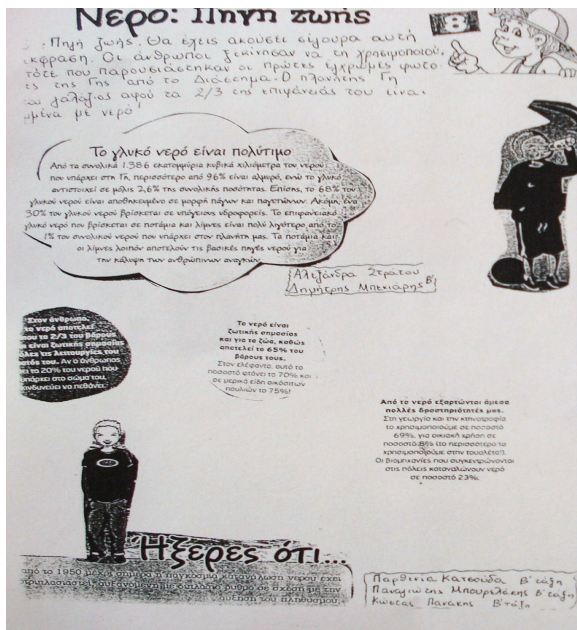 Νερό: Πηγή ζωής
8
: Πηγή ζωής. Θα έχεις ακούσει σίγουρα αυτή
κφραση. Οι άνθρωποι ξεκίνησαν να τη χρησιμοποιού.
τότε που παρουσιάστηκαν οι πρώτες έγχρωμες φωτο-
ες της Γης από το Διάστημα. Ο πλανήτης Γη
γαλάζιος αφού τα 2/3 της επιφάνειάς του είναι
μένα με νερό!
Το γλυκό νερό είναι πολύτιμο
Από τα συνολικά 1.386 εκατομμύρια κυβικά χιλιόμετρα του νερού
που υπάρχει στη Γη, περισσότερο από 96% είναι αλμυρό, ενώ το γλυκό
αντιστοιχεί σε μόλις 2,6% της συνολικής ποσότητας. Επίσης, το 68% του
γλυκού νερού είναι αποθηκευμένο σε μορφή πάγων και παγετώνων. Ακόμη, ένα
30% του γλυκού νερού βρίσκεται σε υπόγειους υδροφορείς. Το επιφανειακό
γλυκό νερό που βρίσκεται σε ποτάμια και λίμνες είναι πολύ λιγότερο από το
1% του συνολικού νερού που υπάρχει στον πλανήτη μας. Τα ποτάμια και
οι λίμνες λοιπόν αποτελούν τις βασικές πηγές νερού για
την κάλυψη των ανθρώπινων αναγκών.
Αλεξάνδρα Στράτου
Δημήτρης Μπεκιάρης Β'
Στον άνθρωπο,
το νερό αποτελεί
που τα 2/3 του βάρους
α είναι ζωτικής σημασίας
όλες τις λειτουργίες του
ατός του. Αν ο άνθρωπος
ει το 20% του νερού που
υπάρχει στο σώμα του,
κινδυνεύει να πεθάνει.
Το νερό είναι
ζωτικής σημασίας
και για τα ζώα, καθώς
αποτελεί το 65% του
βάρους τους.
Στον ελέφαντα, αυτό το
ποσοστό φτάνει το 70% και
σε μερικά είδη οικόσιτων
πουλιών το 75%!
Από το νερό εξαρτώνται άμεσα
πολλές δραστηριότητές μας.
Στη γεωργία και την κτηνοτροφία
το χρησιμοποιούμε σε ποσοστό
69%, για οικιακή χρήση σε
ποσοστό 8% (το περισσότερο το
χρησιμοποιούμε στην τουαλέτα!).
Οι βιομηχανίες που συγκεντρώνονται
στις πόλεις καταναλώνουν νερό
σε ποσοστό 23%.
Ήξερες ότι...
από το 1950 μέχρι σήμερα η παγκόσμια κατανάλωση νερού έχει
τριπλασιαστεί; Αυξάνουμε με διπλάσιο ρυθμό σε σχέση με την
αύξηση του πληθυσμού.
Παρθενία Κατσούδα Β' τάξη
Παναγιώτης Μπουρλάκης Β' τάξη
Κώστας Πανάκης Β' τάξη